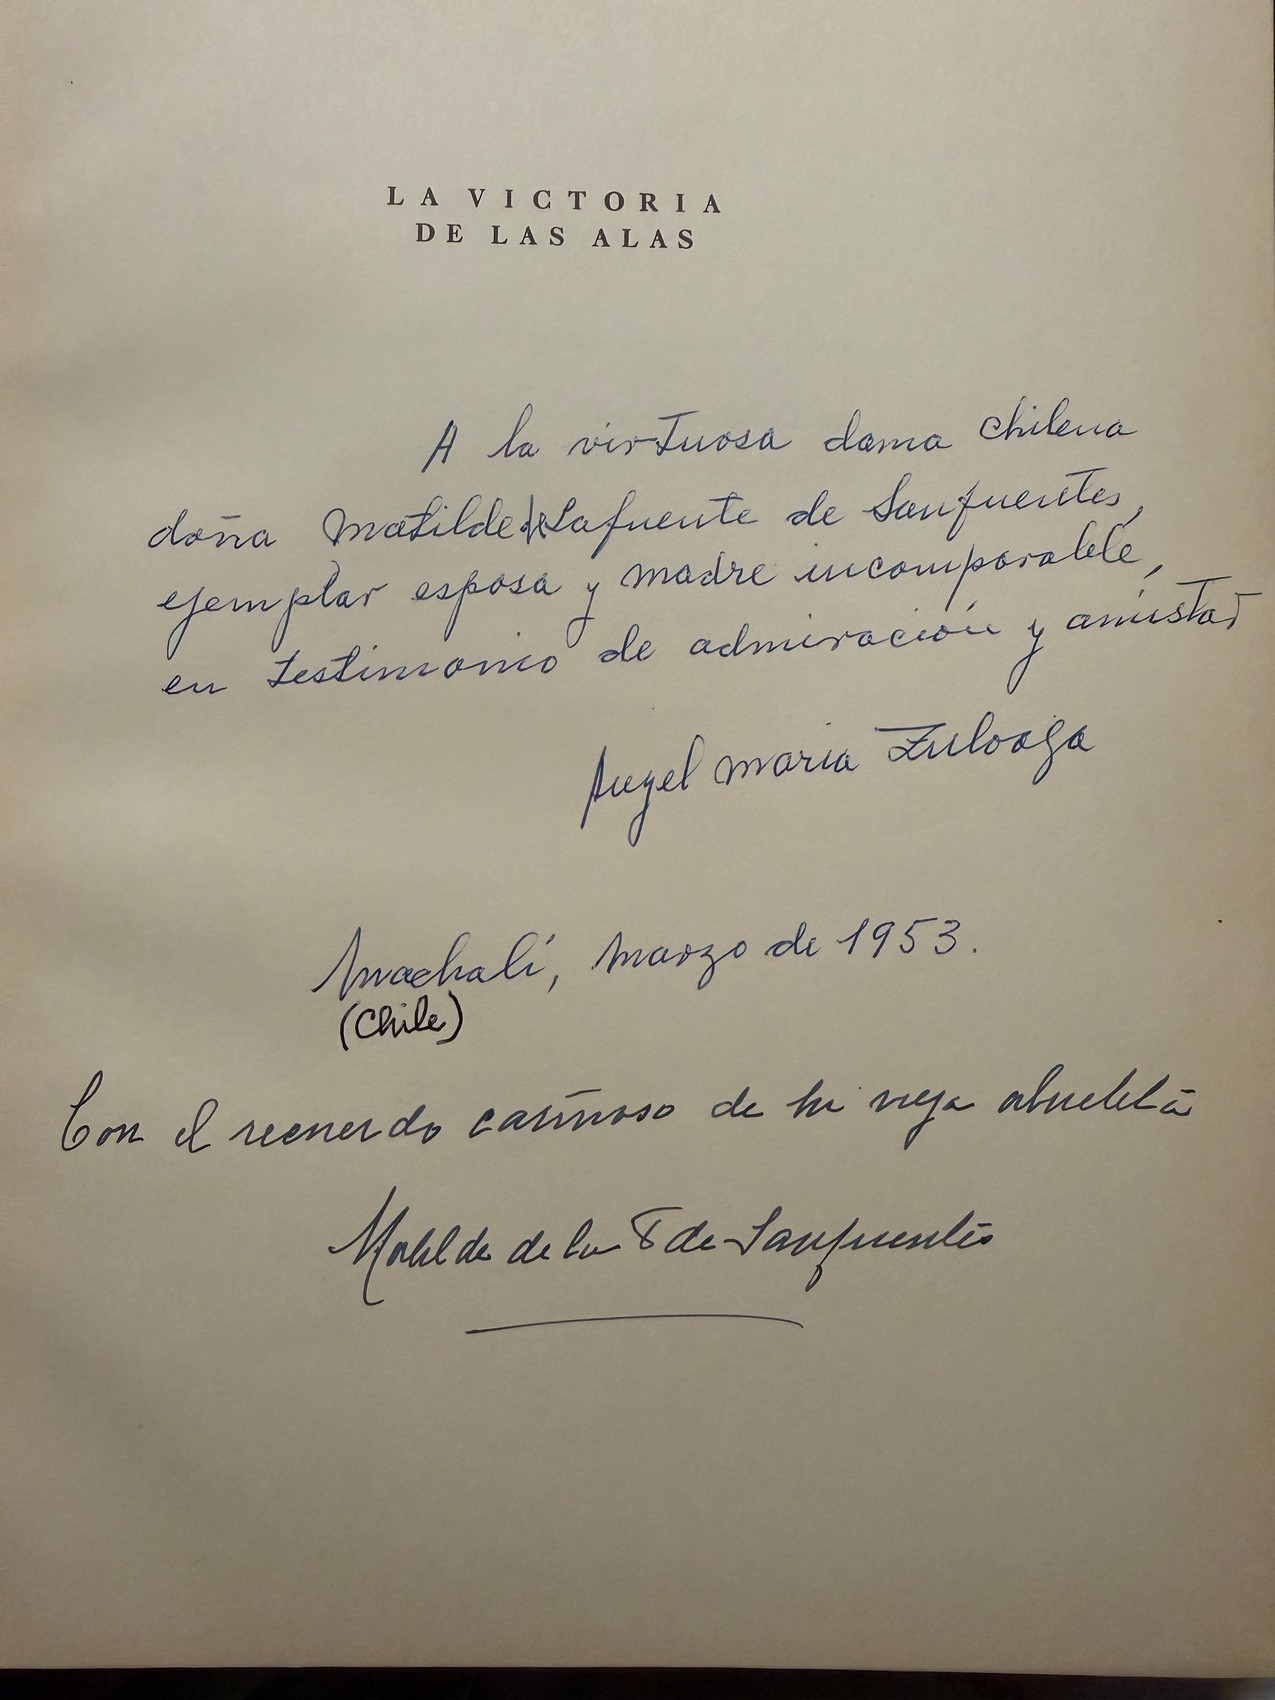 LA VICTORIA
DE LAS ALAS
A la virtuosa dama chilena
doña Matilde de Lafuente de Sanfuentes,
ejemplar esposa y madre incomparable,
en testimonio de admiración y amistad
Angel Maria Zuloaga
Machalí, Marzo de 1953.
(Chile)
Con el recuerdo cariñoso de tu vieja abuelita
Matilde de la F de Sanfuentes